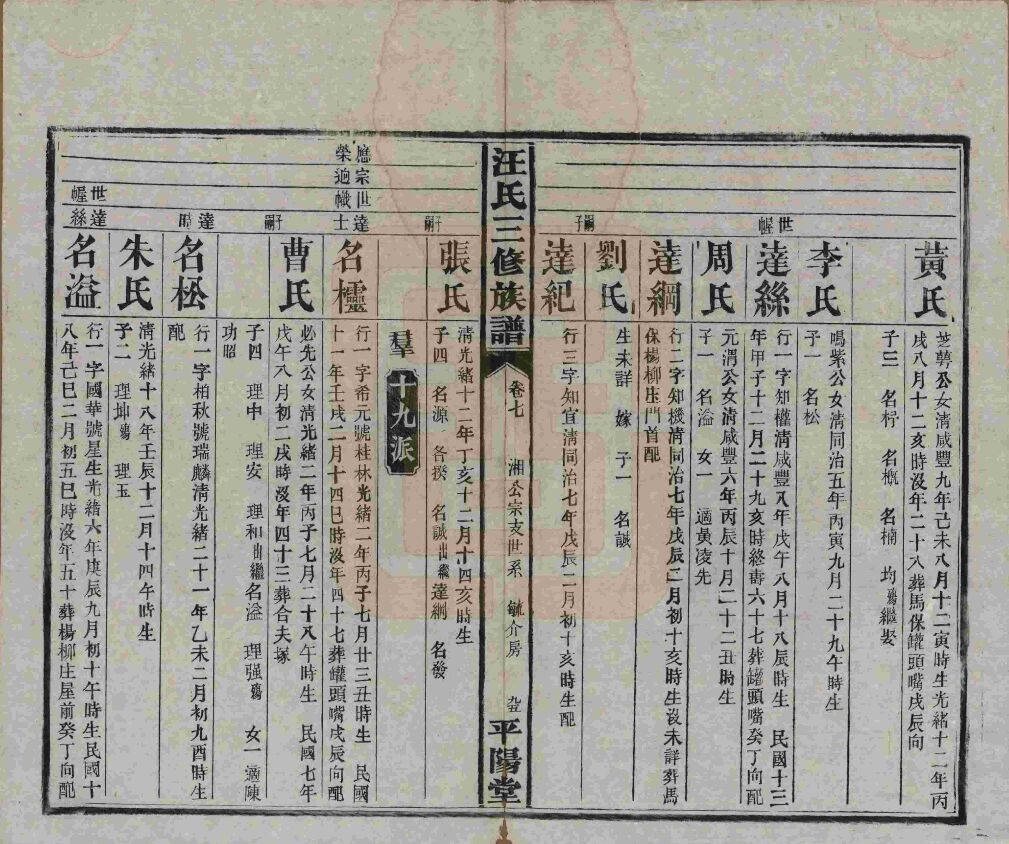 黃氏
芝蕚公女清咸豐九年己未八月十二寅時生光緒十二年丙
戌八月十二亥時沒年二十八葬馬保罐頭嘴戌辰向
子三 名杍 名概 名楠 均殤繼娶
李氏
鳴紫公女清同治五年丙寅九月二十九午時生
子一 名松
世幄
達絲
行一字知權清咸豐八年戊午八月十八辰時生 民國十三
年甲子十二月二十九亥時終壽六十七葬罐頭嘴癸丁向配
周氏
元渭公女清咸豐六年丙辰十月二十二丑時生
子一 名溢 女一 適黃凌先
達綱
行二字知機清同治七年戊辰二月初十亥時生沒未詳葬馬
保楊柳庄門首配
劉氏
生未詳 嫁 子一 名誠
嗣子
達紀
行三字知宜清同治七年戊辰二月初十亥時生配
汪氏三修族譜
卷七
湘公宗支世系
毓介房
平陽堂
嗣子
張氏
清光緒十二年丁亥十二月十四亥時生
子四 名源 各揆 名誠出繼達綱 名發
羣 十九派
應宗世達
榮迥幟士
名櫺
行一字希元號桂林光緒二年丙子七月廿三丑時生 民國
十一年壬戌二月十四巳時沒年四十七葬罐頭嘴戌辰向配
嗣子
曹氏
必先公女清光緒二年丙子七月二十八午時生 民國七年
戊午八月初二戌時沒年四十三葬合夫塚
子四 理中 理安 理和出繼名溢 理强殤 女一適陳
功昭
達時
名松
行一字柏秋號瑞麟清光緒二十一年乙未二月初九酉時生
配
朱氏
清光緒十八年壬辰十二月十四午時生
子二 理坤殤 理玉
世幄
達絲
名溢
行一字國華號星生光緒六年庚辰九月初十午時生民國十
八年己巳二月初五巳時沒年五十葬楊柳庄屋前癸丁向配